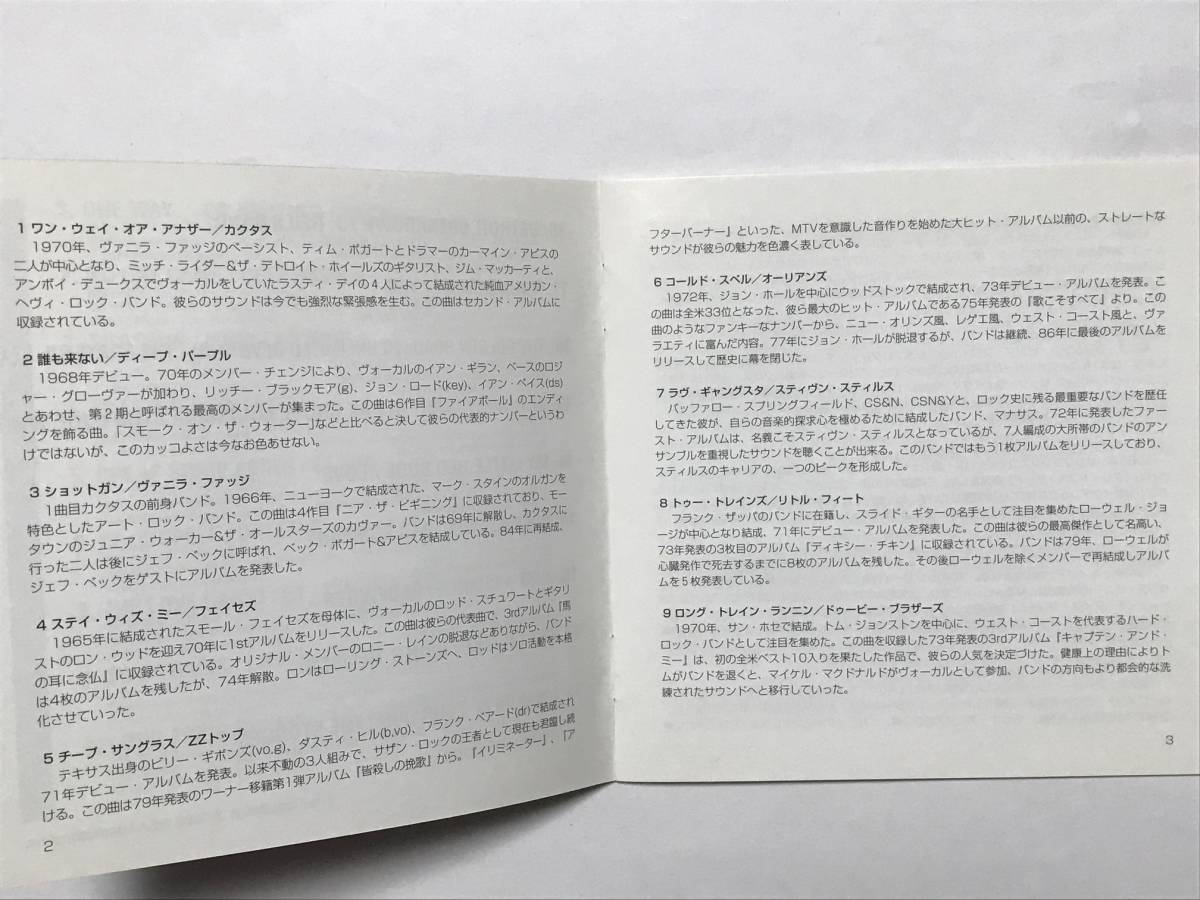 1 ワン・ウェイ・オア・アナザー／カクタス
1970年、ヴァニラ・ファッジのベーシスト、ティム・ボガートとドラマーのカーマイン・アピスの
二人が中心となり、ミッチ・ライダー&ザ・デトロイト・ホイールズのギタリスト、ジム・マッカーティと、
アンボイ・デュークスでヴォーカルをしていたラスティ・デイの4人によって結成された純血アメリカン・
ヘヴィ・ロック・バンド。彼らのサウンドは今でも強烈な緊張感を生む。この曲はセカンド・アルバムに
収録されている。
2 誰も来ない／ディープ・パープル
1968年デビュー。70年のメンバー・チェンジにより、ヴォーカルのイアン・ギラン、ベースのロジ
ャー・グローヴァーが加わり、リッチー・ブラックモア(g)、ジョン・ロード(key)、イアン・ペイス(ds)
とあわせ、第2期と呼ばれる最高のメンバーが集まった。この曲は6作目『ファイアボール』のエンディ
ングを飾る曲。「スモーク・オン・ザ・ウォーター」などと比べると決して彼らの代表的ナンバーというわ
けではないが、このカッコよさは今なお色あせない。
3 ショットガン／ヴァニラ・ファッジ
1曲目カクタスの前身バンド。1966年、ニューヨークで結成された、マーク・スタインのオルガンを
特色としたアート・ロック・バンド。この曲は4作目『ニア・ザ・ビギニング』に収録されており、モー
タウンのジュニア・ウォーカー&ザ・オールスターズのカヴァー。バンドは69年に解散し、カクタスに
行った二人は後にジェフ・ベックに呼ばれ、ベック・ボガート&アピスを結成している。84年に再結成、
ジェフ・ベックをゲストにアルバムを発表した。
4 ステイ・ウィズ・ミー／フェイセズ
1965年に結成されたスモール・フェイセズを母体に、ヴォーカルのロッド・スチュワートとギタリ
ストのロン・ウッドを迎え70年に1stアルバムをリリースした。この曲は彼らの代表曲で、3rdアルバム『馬
の耳に念仏』に収録されている。オリジナル・メンバーのロニー・レインの脱退などありながら、バンド
は4枚のアルバムを残したが、74年解散。ロンはローリング・ストーンズへ、ロッドはソロ活動を本格
化させていった。
5 チープ・サングラス／ZZトップ
テキサス出身のビリー・ギボンズ(vo,g)、ダスティ・ヒル(b,vo)、フランク・ベアード(dr)で結成され
71年デビュー・アルバムを発表。以来不動の3人組みで、サザン・ロックの王者として現在も君臨し続
ける。この曲は79年発表のワーナー移籍第1弾アルバム『皆殺しの挽歌』から。『イリミネーター』、『ア
2
フターバーナー』といった、MTVを意識した音作りを始めた大ヒット・アルバム以前の、ストレートな
サウンドが彼らの魅力を色濃く表している。
6 コールド・スペル／オーリアンズ
1972年、ジョン・ホールを中心にウッドストックで結成され、73年デビュー・アルバムを発表。こ
の曲は全米33位となった、彼ら最大のヒット・アルバムである75年発表の『歌こそすべて』より。この
曲のようなファンキーなナンバーから、ニュー・オリンズ風、レゲエ風、ウェスト・コースト風と、ヴァ
ラエティに富んだ内容。77年にジョン・ホールが脱退するが、バンドは継続、86年に最後のアルバムを
リリースして歴史に幕を閉じた。
7 ラヴ・ギャングスタ／スティヴン・スティルス
バッファロー・スプリングフィールド、CS&N、CSN&Yと、ロック史に残る最重要なバンドを歴任
してきた彼が、自らの音楽的探求心を極めるために結成したバンド、マナサス。72年に発表したファー
スト・アルバムは、名義こそスティヴン・スティルスとなっているが、7人編成の大所帯のバンドのアン
サンブルを重視したサウンドを聴くことが出来る。このバンドではもう1枚アルバムをリリースしており、
スティルスのキャリアの、一つのピークを形成した。
8 トゥー・トレインズ／リトル・フィート
フランク・ザッパのバンドに在籍し、スライド・ギターの名手として注目を集めたローウェル・ジョ
ージが中心となり結成、71年にデビュー・アルバムを発表した。この曲は彼らの最高傑作として名高い、
73年発表の3枚目のアルバム『ディキシー・チキン』に収録されている。バンドは79年、ローウェルが
心臓発作で死去するまでに8枚のアルバムを残した。その後ローウェルを除くメンバーで再結成しアルバ
ムを5枚発表している。
9 ロング・トレイン・ランニン／ドゥービー・ブラザーズ
1970年、サン・ホセで結成。トム・ジョンストンを中心に、ウェスト・コーストを代表するハード・
ロック・バンドとして注目を集めた。この曲を収録した73年発表の3rdアルバム『キャプテン・アンド・
ミー』は、初の全米ベスト10入りを果たした作品で、彼らの人気を決定づけた。健康上の理由によりト
ムがバンドを退くと、マイケル・マクドナルドがヴォーカルとして参加、バンドの方向もより都会的な洗
練されたサウンドへと移行していった。
3